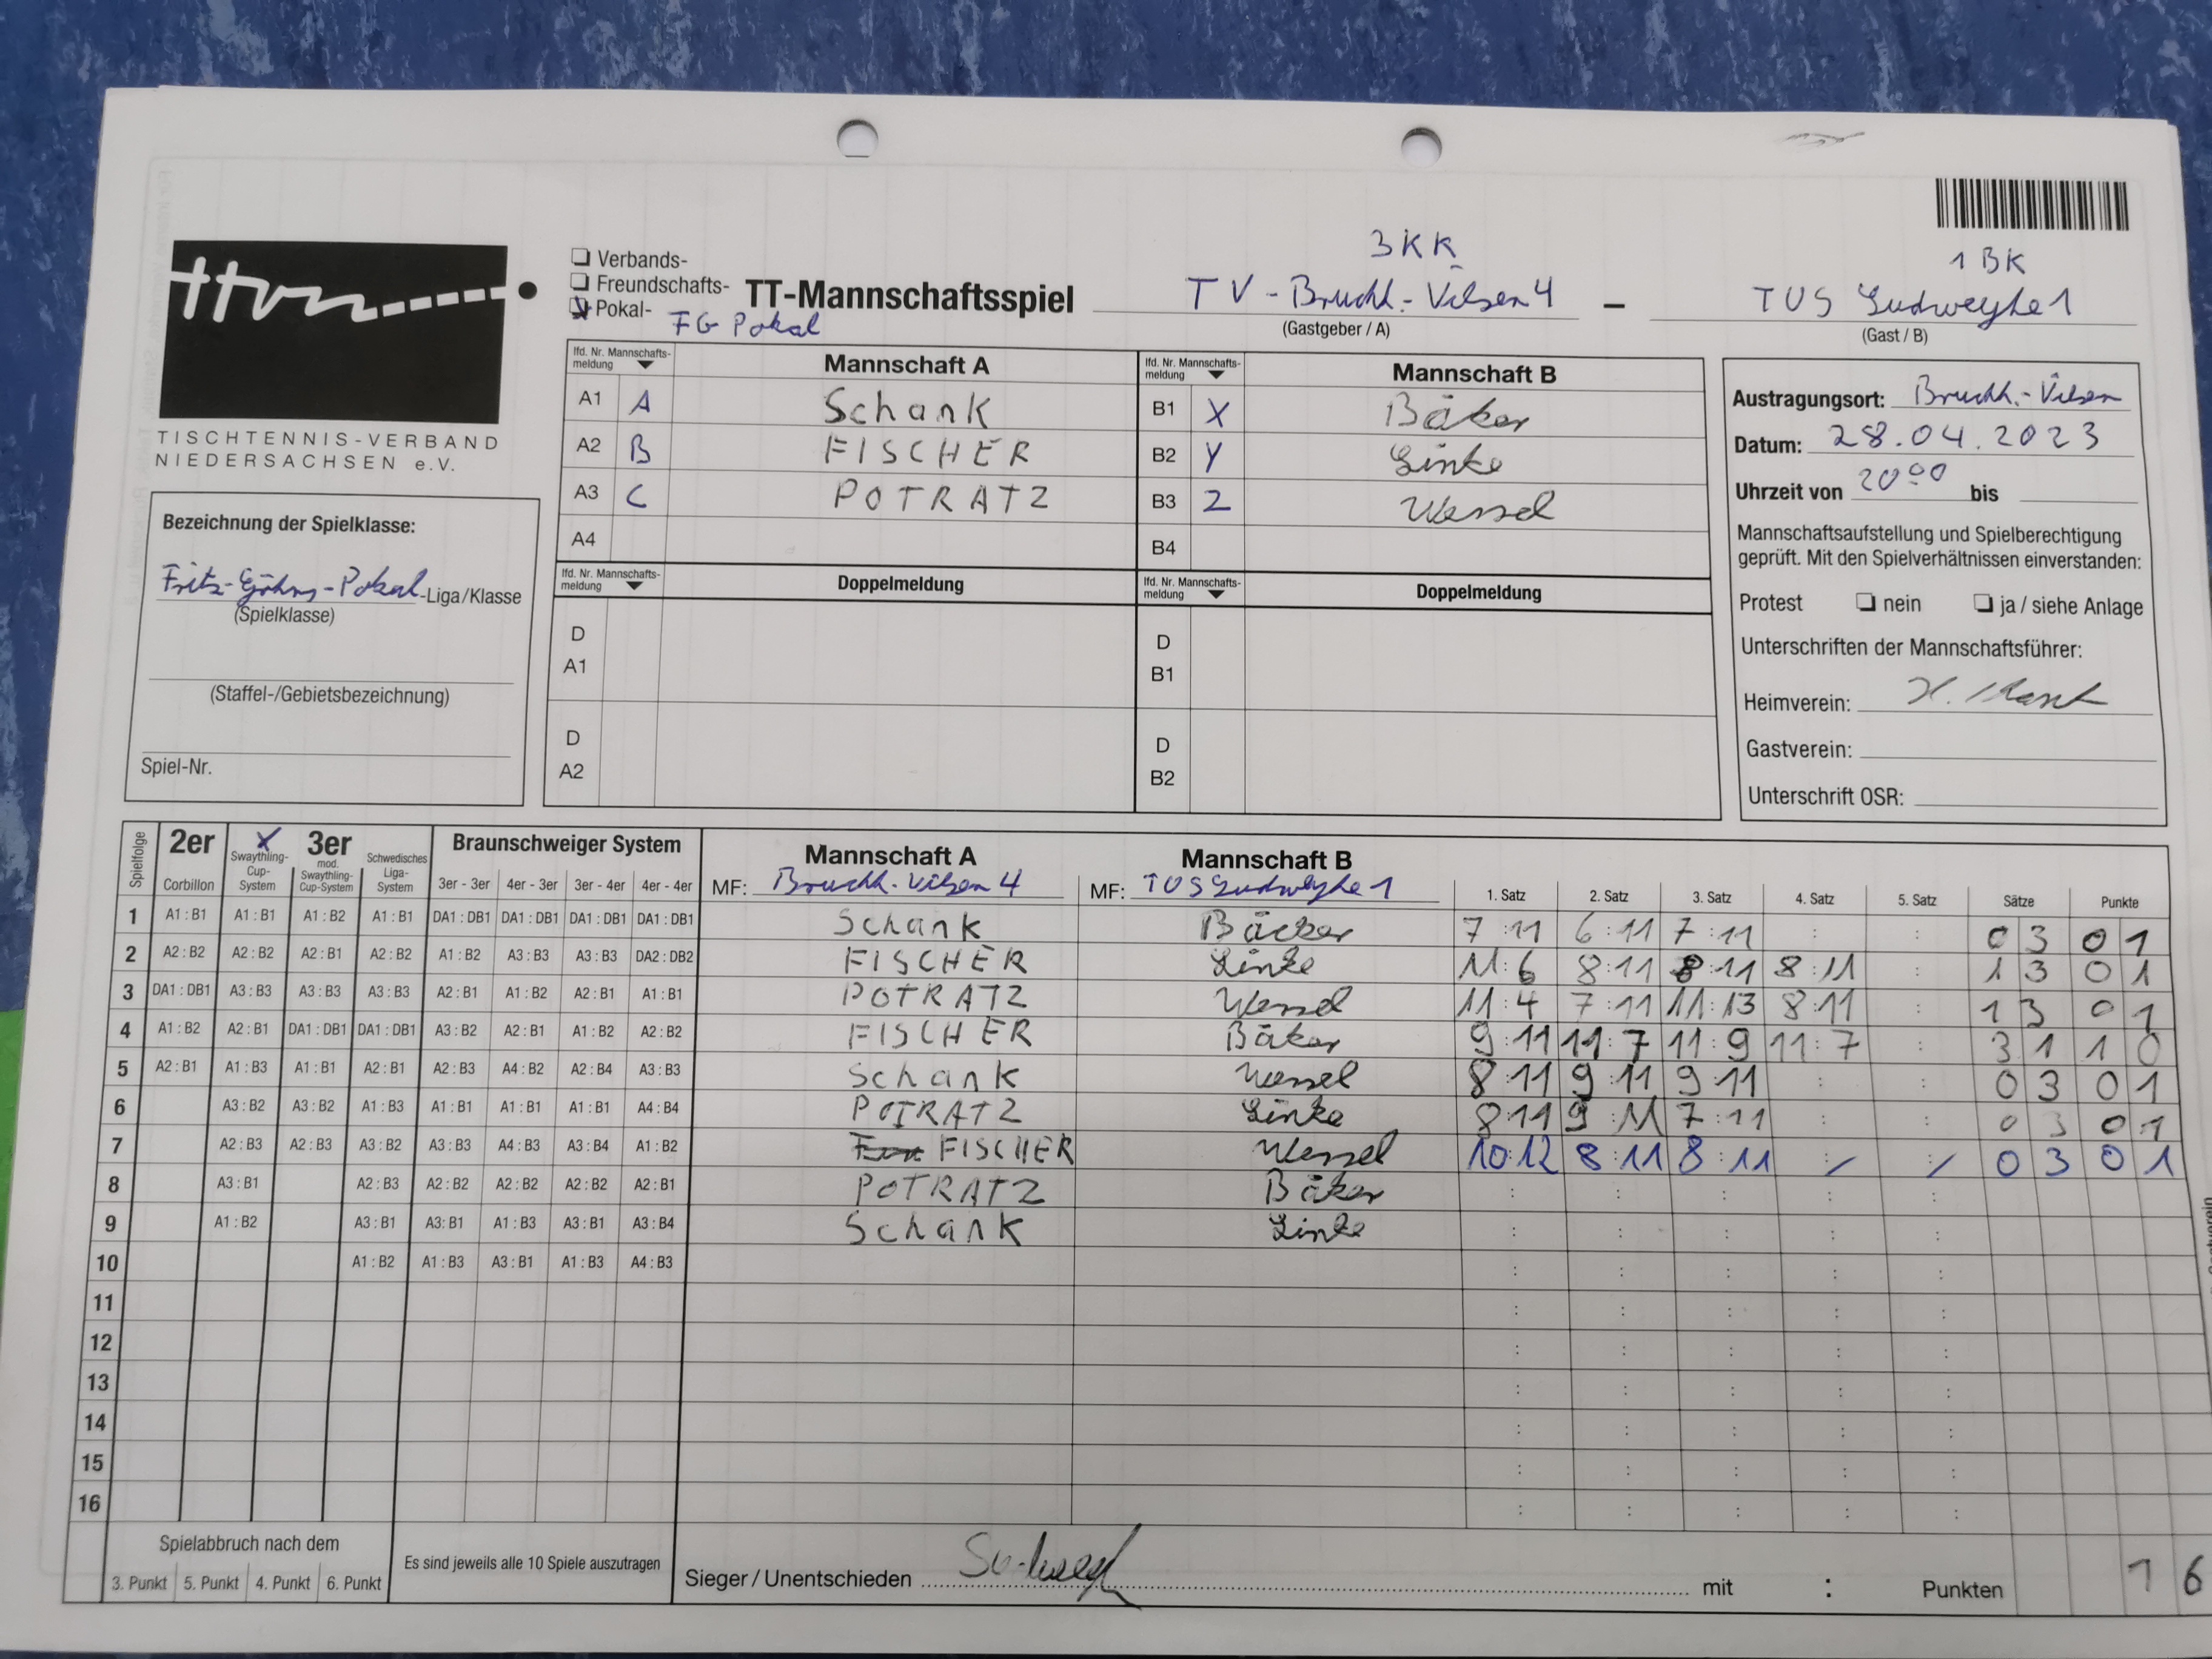 3KK
1 BK
ttvn
TISCHTENNIS-VERBAND
NIEDERSACHSEN e.V.
Verbands-
Freundschafts-
Pokal-
FG Pokal
TT-Mannschaftsspiel
TV-Bruchh.-Vilsen 4 – TUS Sudweyhe 1
(Gastgeber / A) (Gast / B)
Bezeichnung der Spielklasse:
Fritz-Göhrs-Pokal -Liga/Klasse
(Spielklasse)
(Staffel-/Gebietsbezeichnung)
Spiel-Nr.
lfd. Nr. Mannschafts-meldung Mannschaft A lfd. Nr. Mannschafts-meldung Mannschaft B
A1 A Schank B1 X Bäker
A2 B FISCHER B2 Y Linke
A3 C POTRATZ B3 Z Wessel
A4 B4
lfd. Nr. Mannschafts-meldung Doppelmeldung lfd. Nr. Mannschafts-meldung Doppelmeldung
D A1 D B1
D A2 D B2
Austragungsort: Bruchh.-Vilsen
Datum: 28.04.2023
Uhrzeit von 20 00 bis
Mannschaftsaufstellung und Spielberechtigung
geprüft. Mit den Spielverhältnissen einverstanden:
Protest nein ja / siehe Anlage
Unterschriften der Mannschaftsführer:
Heimverein:
Gastverein:
Unterschrift OSR:
Spielfolge 2er X 3er Braunschweiger System Mannschaft A Mannschaft B
Corbillon Swaythling-Cup-System mod. Swaythling-Cup-System Schwedisches Liga-System 3er - 3er 4er - 3er 3er - 4er 4er - 4er MF: Bruchh.-Vilsen 4 MF: TUS Sudweyhe 1 1. Satz 2. Satz 3. Satz 4. Satz 5. Satz Sätze Punkte
1 A1 : B1 A1 : B1 A1 : B2 A1 : B1 DA1 : DB1 DA1 : DB1 DA1 : DB1 DA1 : DB1 Schank Bäcker 7:11 6:11 7:11 : : 0 3 0 1
2 A2 : B2 A2 : B2 A2 : B1 A2 : B2 A1 : B2 A3 : B3 A3 : B3 DA2 : DB2 FISCHER Linke 11:6 8:11 8:11 8:11 : 1 3 0 1
3 DA1 : DB1 A3 : B3 A3 : B3 A3 : B3 A2 : B1 A1 : B2 A2 : B1 A1 : B1 POTRATZ Wessel 11:4 7:11 11:13 8:11 : 1 3 0 1
4 A1 : B2 A2 : B1 DA1 : DB1 DA1 : DB1 A3 : B2 A2 : B1 A1 : B2 A2 : B2 FISCHER Bäker 9:11 11:7 11:9 11:7 : 3 1 1 0
5 A2 : B1 A1 : B3 A1 : B1 A2 : B1 A2 : B3 A4 : B2 A2 : B4 A3 : B3 Schank Wessel 8:11 9:11 9:11 : : 0 3 0 1
6 A3 : B2 A3 : B2 A1 : B3 A1 : B1 A1 : B1 A1 : B1 A4 : B4 POTRATZ Linke 8:11 9:11 7:11 : : 0 3 0 1
7 A2 : B3 A2 : B3 A3 : B2 A3 : B3 A4 : B3 A3 : B4 A1 : B2 FISCHER Wessel 10:12 8:11 8:11 : : 0 3 0 1
8 A3 : B1 A2 : B3 A2 : B2 A2 : B2 A2 : B2 A2 : B1 POTRATZ Bäker : : : : :
9 A1 : B2 A3 : B1 A3 : B1 A1 : B3 A3 : B1 A3 : B4 Schank Linke : : : : :
10 A1 : B2 A1 : B3 A3 : B1 A1 : B3 A4 : B3 : : : : :
11 : : : : :
12 : : : : :
13 : : : : :
14 : : : : :
15 : : : : :
16 : : : : :
Spielabbruch nach dem
3. Punkt 5. Punkt 4. Punkt 6. Punkt
Es sind jeweils alle 10 Spiele auszutragen
Sieger / Unentschieden mit : Punkten 1 6